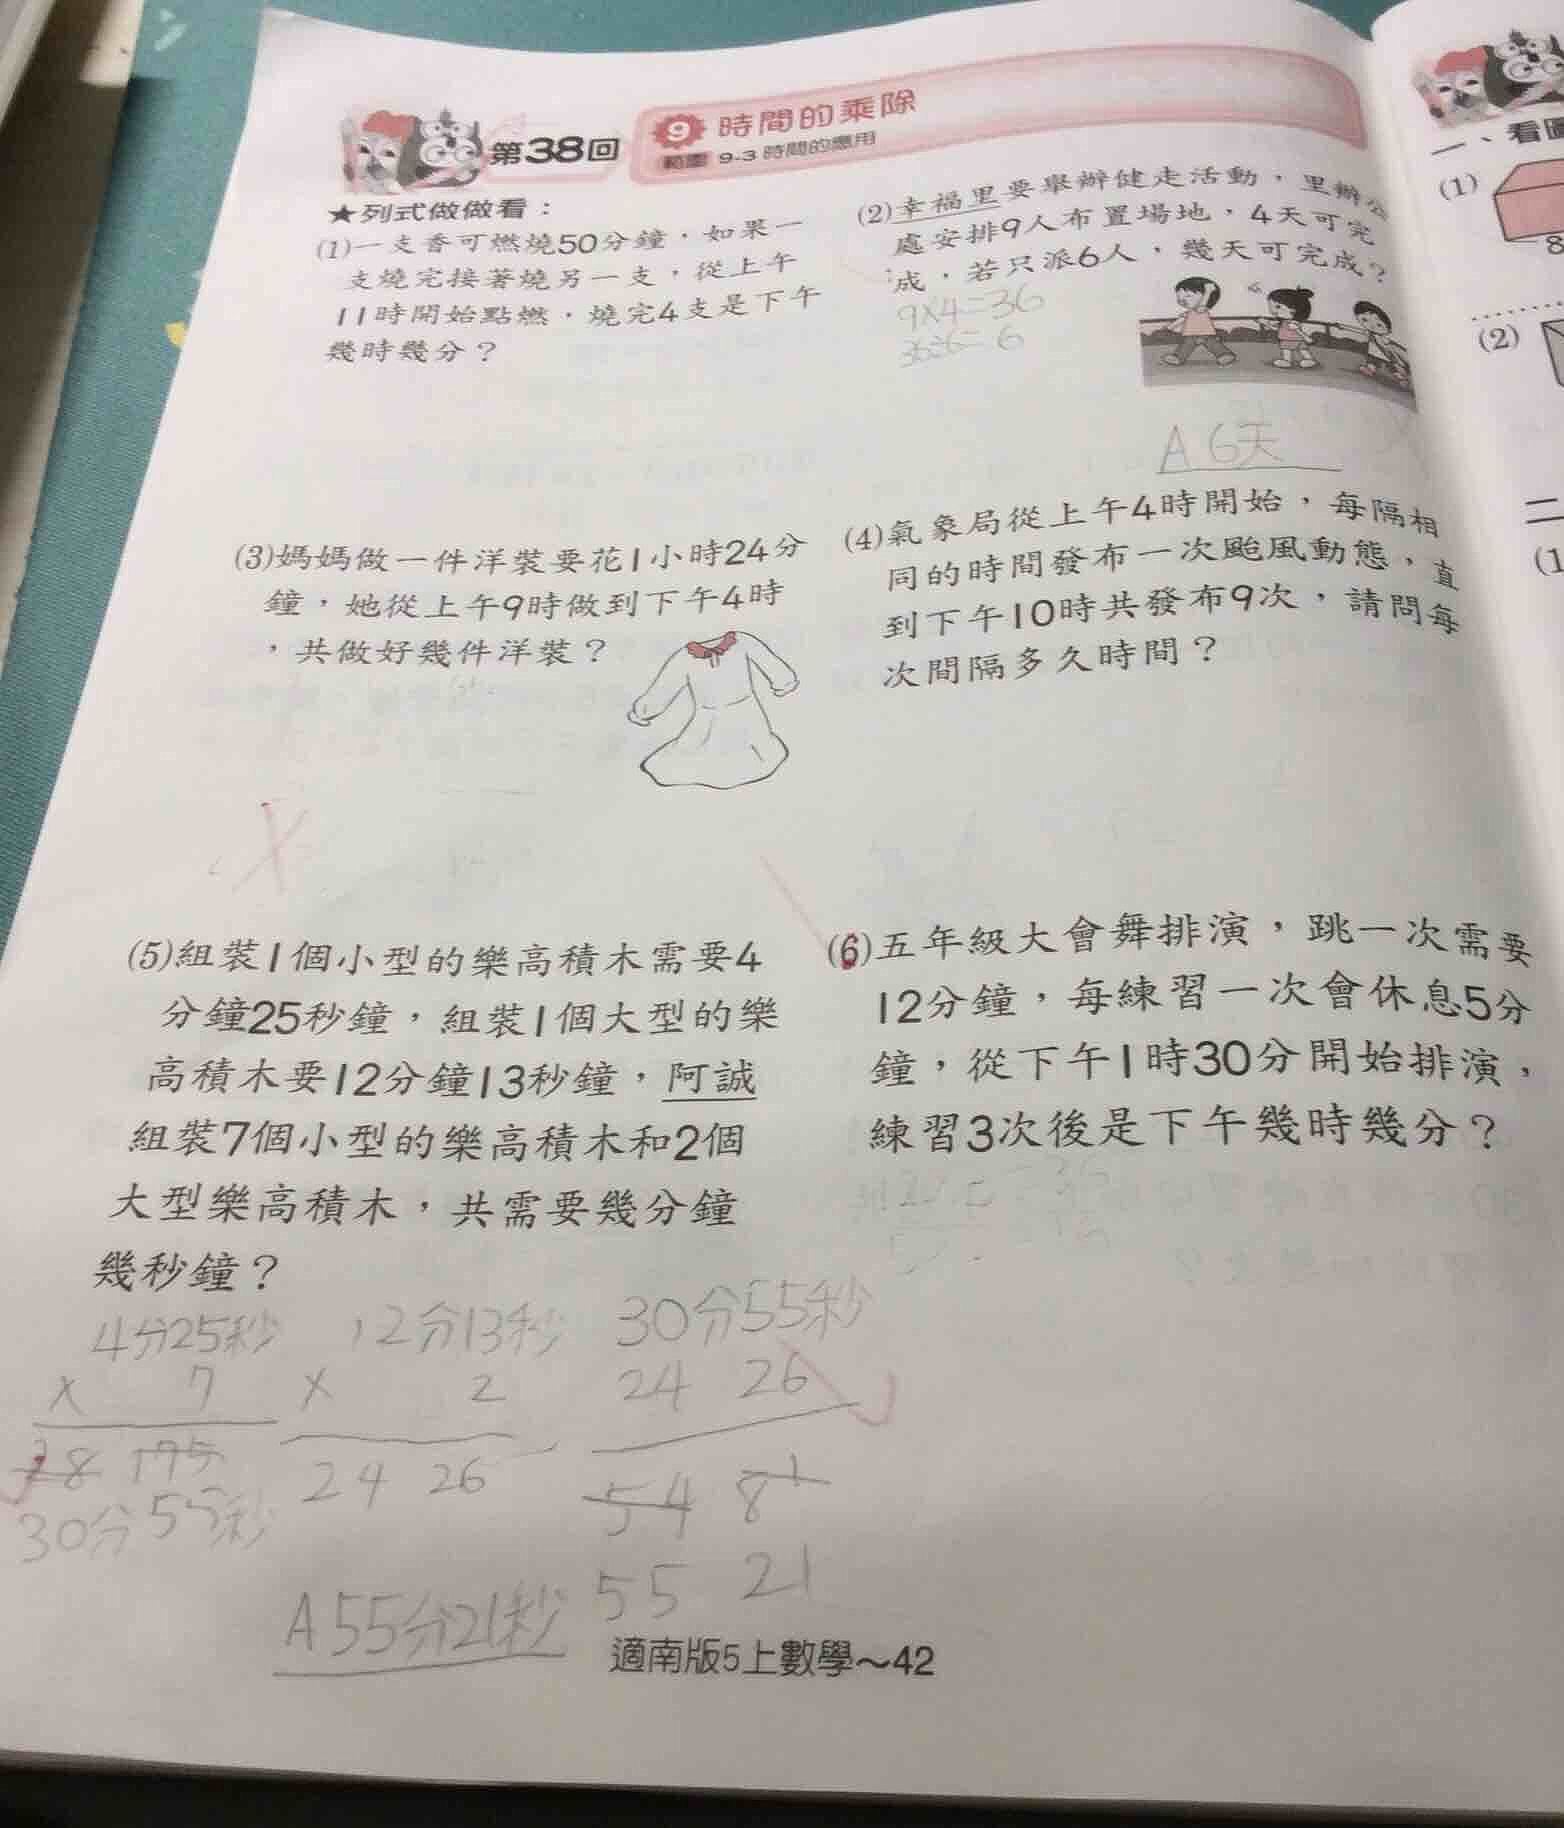 第38回
9 時間的乘除
範圍 9-3 時間的應用
★列式做做看：
(1)一支香可燃燒50分鐘，如果一
支燒完接著燒另一支，從上午
11時開始點燃，燒完4支是下午
幾時幾分？
(2)幸福里要舉辦健走活動，里辦公
處安排9人布置場地，4天可完
成，若只派6人，幾天可完成？
9×4=36
36÷6=6
A 6天
(3)媽媽做一件洋裝要花1小時24分
鐘，她從上午9時做到下午4時
，共做好幾件洋裝？
(4)氣象局從上午4時開始，每隔相
同的時間發布一次颱風動態，直
到下午10時共發布9次，請問每
次間隔多久時間？
(5)組裝1個小型的樂高積木需要4
分鐘25秒鐘，組裝1個大型的樂
高積木要12分鐘13秒鐘，阿誠
組裝7個小型的樂高積木和2個
大型樂高積木，共需要幾分鐘
幾秒鐘？
4分25秒
× 7
28 175
30分55秒
12分13秒
× 2
24 26
30分55秒
24 26
54 81
55 21
A 55分21秒
(6)五年級大會舞排演，跳一次需要
12分鐘，每練習一次會休息5分
鐘，從下午1時30分開始排演，
練習3次後是下午幾時幾分？
適南版5上數學～42
一、看圖
(1)
8
(2)
二
(1